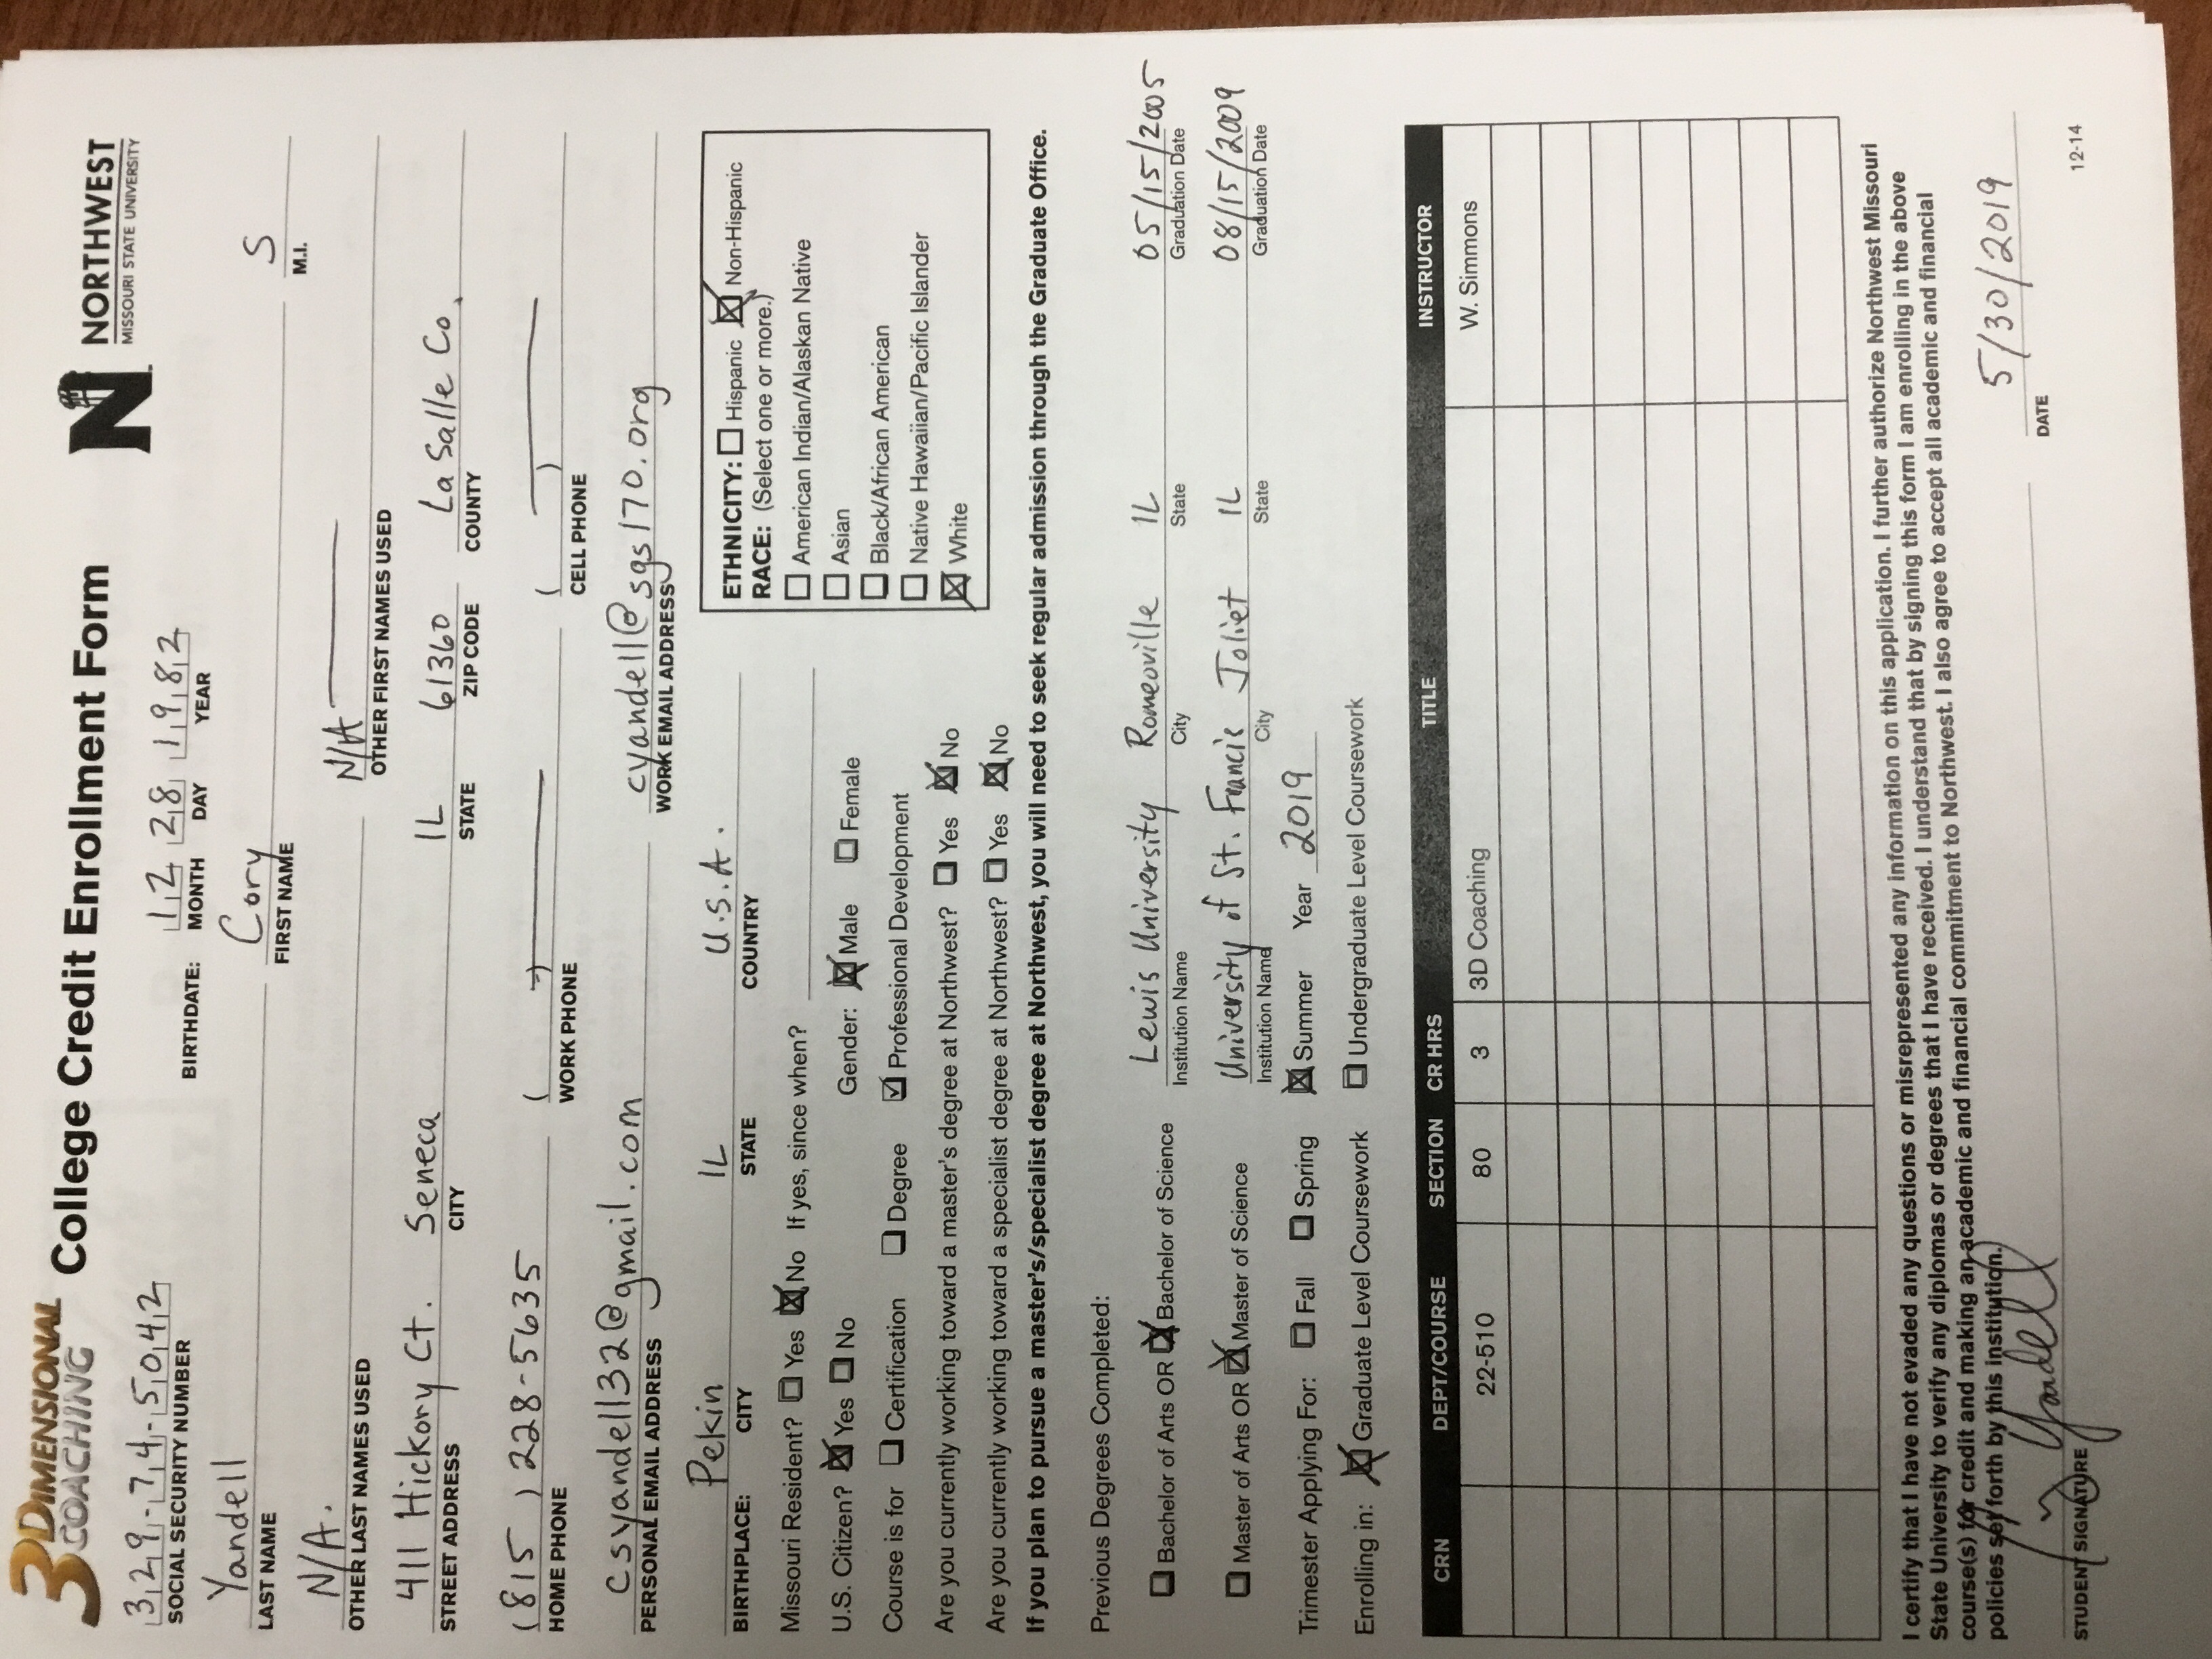 3 DIMENSIONAL COACHING College Credit Enrollment Form N NORTHWEST
MISSOURI STATE UNIVERSITY
329-74-5042 BIRTHDATE: 12 28 1982
SOCIAL SECURITY NUMBER MONTH DAY YEAR
Yandell Cory S
LAST NAME FIRST NAME M.I.
N/A. N/A
OTHER LAST NAMES USED OTHER FIRST NAMES USED
411 Hickory Ct. Seneca IL 61360 La Salle Co.
STREET ADDRESS CITY STATE ZIP CODE COUNTY
(815) 228-5635 ( ) ( )
HOME PHONE WORK PHONE CELL PHONE
csyandell32@gmail.com cyandell@sgs170.org
PERSONAL EMAIL ADDRESS WORK EMAIL ADDRESS
Pekin IL U.S.A.
BIRTHPLACE: CITY STATE COUNTRY
ETHNICITY: ☐ Hispanic ☒ Non-Hispanic
RACE: (Select one or more.)
☐ American Indian/Alaskan Native
☐ Asian
☐ Black/African American
☐ Native Hawaiian/Pacific Islander
☒ White
Missouri Resident? ☐ Yes ☒ No If yes, since when?
U.S. Citizen? ☒ Yes ☐ No Gender: ☒ Male ☐ Female
Course is for ☐ Certification ☐ Degree ☑ Professional Development
Are you currently working toward a master's degree at Northwest? ☐ Yes ☒ No
Are you currently working toward a specialist degree at Northwest? ☐ Yes ☒ No
If you plan to pursue a master's/specialist degree at Northwest, you will need to seek regular admission through the Graduate Office.
Previous Degrees Completed:
☐ Bachelor of Arts OR ☒ Bachelor of Science Lewis University Romeoville IL 05/15/2005
Institution Name City State Graduation Date
☐ Master of Arts OR ☒ Master of Science University of St. Francis Joliet IL 08/15/2009
Institution Name City State Graduation Date
Trimester Applying For: ☐ Fall ☐ Spring ☒ Summer Year 2019
Enrolling in: ☒ Graduate Level Coursework ☐ Undergraduate Level Coursework
CRN DEPT/COURSE SECTION CR HRS TITLE INSTRUCTOR
22-510 80 3 3D Coaching W. Simmons
I certify that I have not evaded any questions or misrepresented any information on this application. I further authorize Northwest Missouri
State University to verify any diplomas or degrees that I have received. I understand that by signing this form I am enrolling in the above
course(s) for credit and making an academic and financial commitment to Northwest. I also agree to accept all academic and financial
policies set forth by this institution.
Yandell 5/30/2019
STUDENT SIGNATURE DATE
12-14